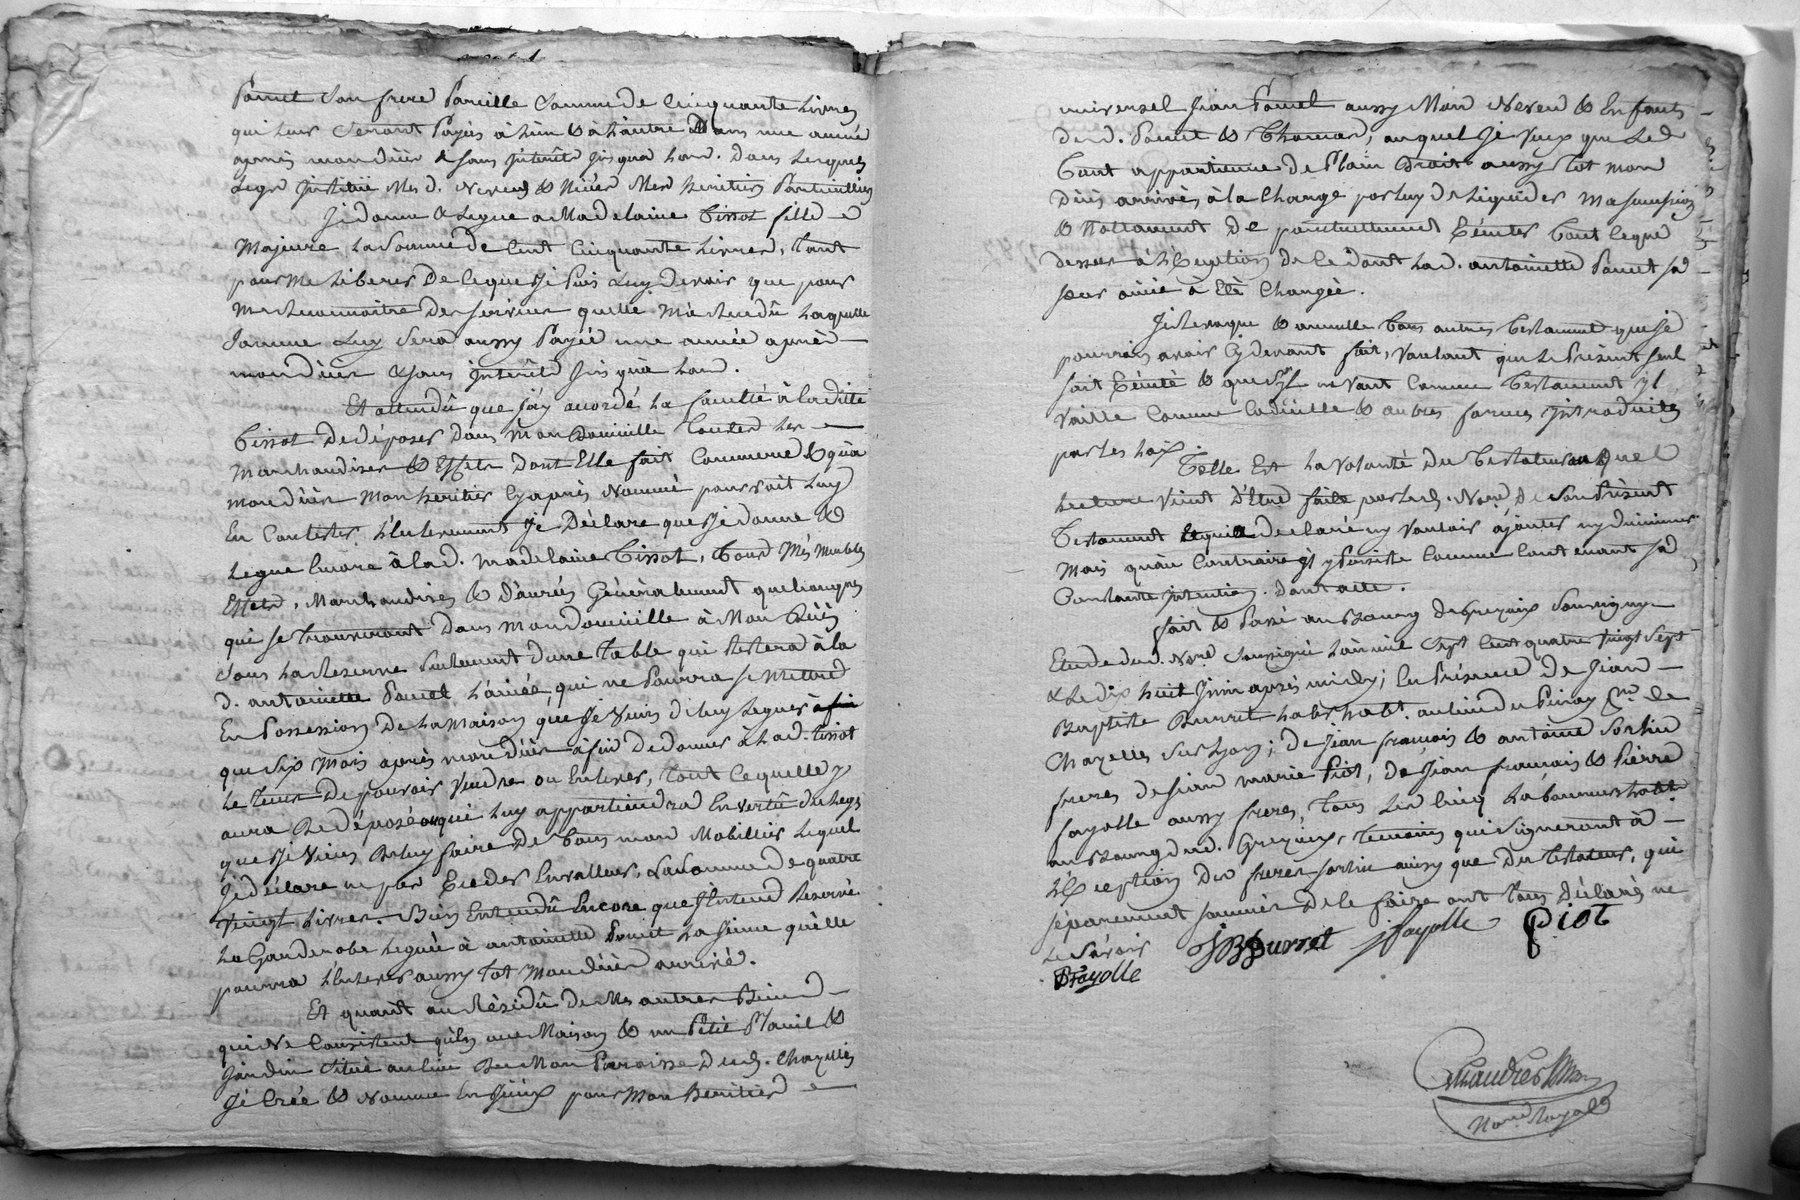 Poncet son frere Pareille somme de Cinquante Livres
qui leur seront Payés à l'un & à l'autre Dans une année
après mon décès & sans jnterêts jusqua lors. Dans lesquels
Legs jnstitüe Mesd. Neveux & Niéces Mes heritiers Particulliers
Je donne & Legue a Madelaine Tissot fille
Majeure La somme de Cent Cinquante Livres, tant
pour Me Liberer De ce que Je Puis Luy devoir que pour
Me Reconnoitre Des services quelle m'a Rendû Laquelle
somme Luy sera aussy Payée une année après
mon décès & sans jnterêts jusqu'à Lors.
Et attendû que j'ay accordé La faculté à laditte
Tissot De déposer dans mon domicille toutes les
Marchandises & Effets dont Elle fait Commerce & qu'à
mon décès Mon heritier Cyaprès Nommé pourroit Luy
En Contester L'enlevement Je Déclare que Je donne &
Legue Encore à lad. Madelaine Tissot, tous Mes Meubles
Effets, Marchandises & Danrés Généralement quelconques
qui se trouveront Dans Mon domicille à Mon Décès
sous La Reserve seulement d'une Table qui Restera à la
d. antoinette Poncet L'ainée, qui ne Pourra se mettre
En Possession De La Maison que Je Viens de luy Leguer
que six Mois après mon décès afin de donner a Lad. Tissot
Le tems De pouvoir Vendre ou Enlever, tout ce quelle y
aura De déposé ouqui Luy appartiendra En vertû du Legs
que Je Viens De luy faire De tous mon Mobillier Lequel
Je déclare ne pas Exceder En valleur, La somme De quatre
Vingt Livres. Bien Entendû Encore que J'Entend Reservé
La Garderobe Leguée à antoinette Poncet La jeune qu'elle
pourra L'enlever aussy tot Mon décès arrivé.
Et quant au Residû De Mes autres Biens
qui Ne Consistent qu'En une Maison & un Petit &
Jardin Situé au lieu De Mon Paroisse Dud. Chazelles
Je Crée & Nomme En Jceux pour Mon Heritier
universel Jean Poncet aussy Mon Neveu & Enfants
dud. Poncet & Thomas, auquel Je Veux que Le
tout appartienne De Plain Droit aussy tot mon
Décès arrivés à la Charge par luy De Liquider Ma sucession
& Nottament De ponctuellement Executer tout Legué
dessus à L'Exception de Ce dont Lad. antoinette Poncet sa
sœur ainée à Eté Chargée.
Je Revoque & annulle tous autres Testament que je
pourrois avoir Cy devant fait, Voulant que Le Présent seul
soit Executé & que s'jl ne Vaut Comme Testament jl
Vaille Comme Codicille & autres formes jntroduites
par les Loix.
Telle Est La Volonté Du Testateur auquel
Lecture Vient D'Etre faite par Led. Nore. De Son Présent
Testament Lequel a declaré ny Vouloir ajouter ny diminuer
Mais qu'au Contraire jl y Persiste Comme Contenant sa
Constante jntention. Dont acte.
fait & Passé au Bourg de Grezieux Souvigny
Etude dud. Nore. soussigné L'an mil sept Cent quatre vingt sept
& Le dix huit Juin après midy; En Présence de Jean
Baptiste Burret Labr. habt. au lieu du
Chazelles Sur Lyon; de Jean françois & antoine sorlin
freres de Jean marie Piot, de Jean francois & Pierre
fayolle aussy freres, tous Les Cinq Laboureurs habt.
au Bourg dud. Grezieux, temoins qui Signeront à
L'Exception Des freres sorlin ainsy que Du Testateur, qui
séparement sommés De le faire ont tous Déclarés ne
Le Savoir JBBurret jfayolle Piot
Pfayolle
Nore. Royal